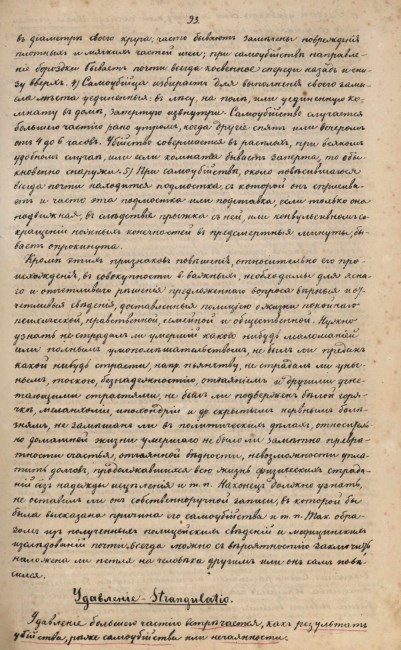 93.
въ діаметрѣ своего круга, часто бываютъ замѣчены поврежденія
плотныхъ и мягкихъ частей шеи; при самоубійствѣ направле-
ніе бороздки бываетъ почти всегда косвенное спереди назадъ и сни-
зу вверхъ. 4) Самоубійца избираетъ для выполненія своего замы-
сла мѣста уединенныя: въ лѣсу, на полѣ, или уединенную ком-
нату въ домѣ, запертую извнутри. Самоубійство случается
большею частію рано утромъ, когда другіе спятъ или вечеромъ
отъ 4 до 6 часовъ. Убійство совершается въ расплохъ, при всякомъ
удобномъ случаѣ, или если комната бываетъ заперта, то обы-
кновенно снаружи. 5) При самоубійствѣ, около повѣсившагося
всегда почти находится подмостка, съ которой онъ спрыгива-
етъ и часто эта подмостка или подставка, если только она
подвижная, въ слѣдствіе прыжка съ ней, или конвульсивныхъ со-
кращеній ножныхъ конечностей въ предсмертныя минуты, бы-
ваетъ опрокинута.
Кромѣ этихъ признаковъ повѣшенія, относительно его про-
исхожденія, въ совокупности важныхъ, необходимы для ясна-
го и отчетливаго рѣшенія предложеннаго вопроса вѣрныя и от-
четливыя свѣденія, доставленныя полиціею о жизни покойнаго
психической, нравственной, семейной и общественной. Нужно
узнать не страдалъ ли умершій какой нибудь маломаніей
или полнымъ умопомѣшательствомъ, не былъ ли преданъ
какой нибудь страсти, напр. пьянству, не страдалъ ли уны-
ніемъ, тоскою, безнадежностію, отчаяніемъ и другими угне-
тающими страстями, не былъ ли подверженъ бѣлой горя-
чкѣ, меланхоліи, ипохондріи и др. скрытымъ нервнымъ болѣ-
знямъ, не замѣшанъ ли въ политическія дѣла, относитель-
но домашней жизни умершаго не было ли замѣтно преврат-
ности счастья, отчаянной бѣдности, невозможности упла-
тить долговъ, продолжавшихся всю жизнь физическихъ страда-
ній безъ надежды исцѣленія и т. п. Наконецъ должно узнать,
не оставилъ ли онъ собственноручной записи, въ которой бы
была высказана причина его самоубійства и т. п. Такъ обра-
зомъ изъ полученныхъ полицейскихъ свѣденій и медицинскихъ
изслѣдованій почти всегда можно съ вѣроятностію заключить
наложена ли петля на человѣка другимъ или онъ самъ повѣ-
сился.
Удавленіе – Strangulatio.
Удавленіе большею частію встрѣчается, какъ результатъ
убійства, рѣже самоубійства или нечаянности.